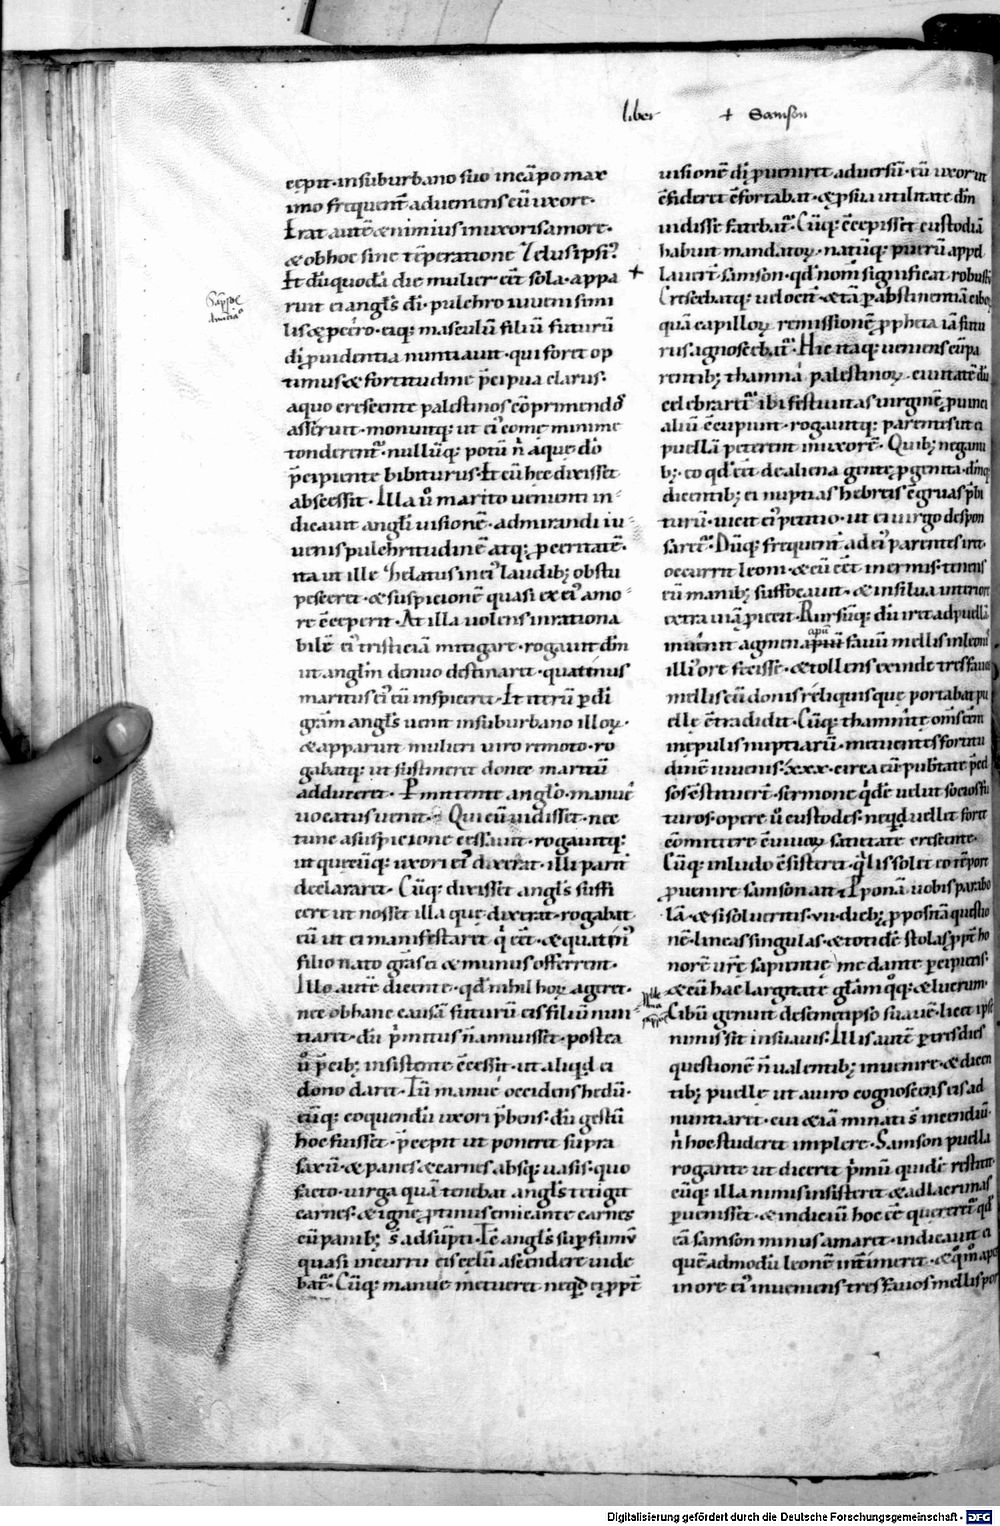 liber + Samson
cępit · in suburbano suo in cāpo max
imo frequent̄ adueniens cū uxore ·
Erat autē & nimius in uxoris amore ·
& ob hoc sine tēperatione zelus ipsi᷒
Et dū quodā die mulier eēt sola · appa
ruit ei angl̄s dī · pulchro iuueni simi
lis & pcero · eiq; masculū filiū futurū
dī puidentia nuntiauit · qui foret op
timus & fortitudine p̄cipua clarus ·
a quo crescente palestinos cōprimendos
asseruit · monuitq; ut ei᷒ comę minime
tonderent᷑ · nullūq; potū n̄ aque dō
p̄cipiente bibiturus · Et cū hec dixisset
abscessit · Illa ů marito uenienti in
dicauit angl̄i uisionē · admirandi iu
uenis pulchritudinē atq; pceritatē ·
ita ut ille zelatus in ei᷒ laudib; obstu
pesceret · & suspicionē quasi ex ei᷒ amo
re c̄ceperit · At illa uolens inrationa
bilē ei᷒ tristiciā mitigare · rogauit dm̄
ut angl̄m denuo destinaret · quatinus
maritus ei᷒ eū inspiceret · Et iterū p dī
grām angl̄s uenit in suburbano illoꝝ ·
& apparuit mulieri uiro remoto · ro
gabatq; ut sustineret donec maritū
adduceret · Pmittente anglo · manue
uocatus uenit · Qui cū uidisset · nec
tunc a suspicione cessauit · rogauitq;
ut quęcūq; uxori ei᷒ dixerat · illi parit̄
declararet · Cūq; dixisset angl̄s suffi
cere ut nosset illa quę dixerat · rogabat
eū ut ei manifestaret q̇ eēt · & quatin᷒
filio nato grās ei & munus offerrent ·
Illo autē dicente · qd̄ nihil hoꝝ ageret ·
nec ob hanc causā futurū eis filiū nun
tiaret · dū p̄mitus n̄ annuisset · postea
ů p̄cib; insistente c̄cessit · ut aliqd ei
dono daret · Tū manue occidens hedū ·
eūq; coquendū uxori p̄bens · dū gestū
hoc fuisset · p̄cepit ut poneret supra
saxū · & panes & carnes absq; uasis · quo
facto · uirga quā tenebat angl̄s tetigit
carnes · & igne ptinus emicante carnes
cū panib; s̄ adsūpti · Tc̄ angl̄s sup fumū
quasi in curru eis celū ascendere uide
bat᷑ · Cūq; manue metueret neqd ei ppt̄
uisionē dī pueniret aduersū · eū uxor ut
c̄fideret c̄fortabat · & p sua utilitate dm̄
uidisse fatebat᷑ · Cūq; c̄cepisset custodiā
habuit mandatoꝝ · natūq; puerū appel
lauer̄t samson · qd̄ nom̄ significat robust᷒
Crescebatq; uelocit̄ · & tā p abstinentiā cibo
quā capilloꝝ remissionē ppheta iā futu
rus agnoscebat᷑ · Hic itaq; ueniens cū pa
rentib; thamna palestinoꝝ ciuitatē dū
celebraret᷑ ibi festiuitas uirginē puinci
aliū c̄cupiuit · rogauitq; parentes ut ei
puellā peterent in uxorē · Quib; negant
b; · eo qd̄ eēt de aliena gente pgenita · dm̄q;
dicentib; ei nuptias hebreis c̄gruas p̄bi
turū · uicit ei᷒ petitio · ut ei uirgo despon
saret᷑ · Dūq; frequent̄ ad ei᷒ parentes iret
occurrit leoni · & cū eēt inermis · tenens
eū manib; suffocauit · & in silua interiore
cetra uiā piecit · Rursūq; dū iret ad puellā
inuenit agmen apiū fauū mellis in leonis
illi᷒ ore fecisse · & tollens exinde tres fauos
mellis cū donis reliquis quę portabat pu
ellę c̄tradidit · Cūq; thamnite om̄s eum
in epulis nuptiarū · metuentes fortitu
dinē iuuenis · xxx · circa eū pubtate p̄ced
sos c̄stituer̄t · sermone q̇dē uelut socios fu
turos · opere ů custodes · neqd uellet forte
cōmittere c̄uiuoꝝ satietate crescente ·
Cūq; in ludo c̄sisteret · q̄lis solet eo tēpore
puenire samson ait · Pponā uobis parabo
lā · & si solueritis · vii · dieb; pposita questio
nē · lineas singulas · & totidē stolas ppt̄ ho
norē urē sapientię me dante pcipietis ·
& cū hac largitate gl̄am q̇q; & lucrum ·
Cibū genuit de semetipso suauē · licet ipse
nimis sit insuauis · Illis autē p tres dies
questionē n̄ ualentib; inuenire · & dicen
tib; puellę ut a uiro cognoscens eis ad
nuntiaret · cui & iā minati s̄ incendiū ·
n̄ hoc studeret implere · Samson puella
rogante ut diceret p̄mū quidē restitit ·
cūq; illa nimis insisteret · & ad lacrimas
puenisset · & indiciū hoc eē quereret᷑ qd̄
eā samson minus amaret · indicauit ei
quē admodū leonē int̄imerit · & q̇mo ap
in ore ei᷒ inueniens tres fauos mellis por
Digitalisierung gefördert durch die Deutsche Forschungsgemeinschaft - DFG